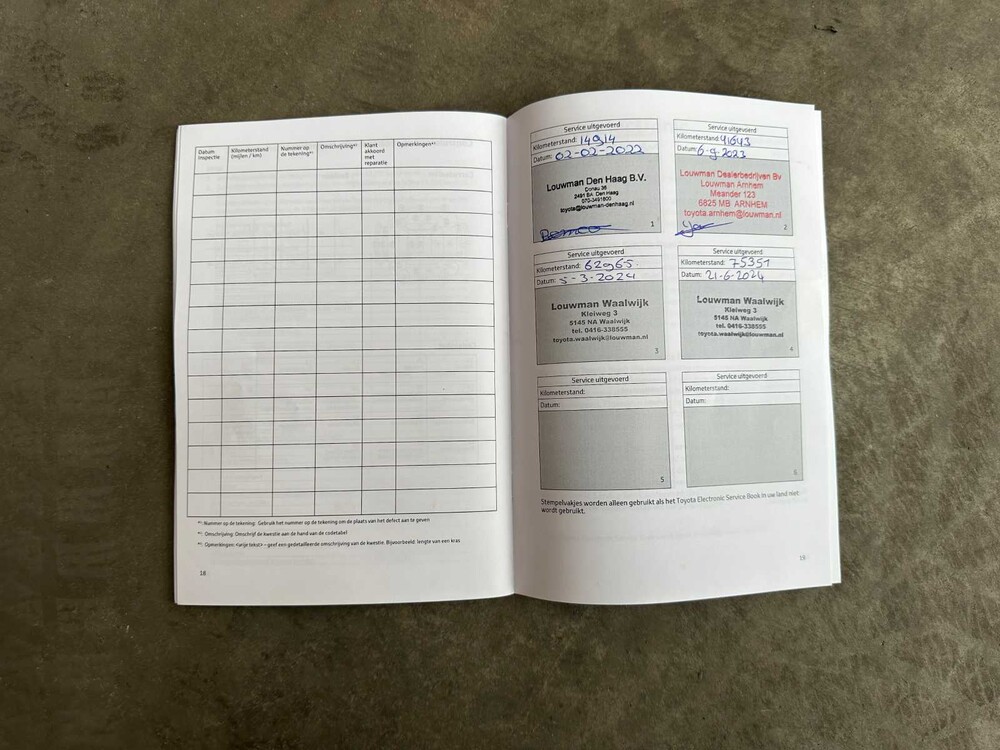 Datum inspectie
Kilometerstand (mijlen / km)
Nummer op de tekening*¹
Omschrijving*²
Klant akkoord met reparatie
Opmerkingen*³
*¹: Nummer op de tekening: Gebruik het nummer op de tekening om de plaats van het defect aan te geven
*²: Omschrijving: Omschrijf de kwestie aan de hand van de codetabel
*³: Opmerkingen: <vrije tekst> – geef een gedetailleerde omschrijving van de kwestie. Bijvoorbeeld: lengte van een kras
18
Service uitgevoerd
Kilometerstand: 14914
Datum: 02-02-2022
Louwman Den Haag B.V.
Donau 36
2491 BA Den Haag
070-3491600
toyota@louwman-denhaag.nl
1
Service uitgevoerd
Kilometerstand: 41643
Datum: 6-9-2023
Louwman Dealerbedrijven Bv
Louwman Arnhem
Meander 123
6825 MB ARNHEM
toyota.arnhem@louwman.nl
2
Service uitgevoerd
Kilometerstand: 62965
Datum: 5-3-2024
Louwman Waalwijk
Kleiweg 3
5145 NA Waalwijk
tel. 0416-338555
toyota.waalwijk@louwman.nl
3
Service uitgevoerd
Kilometerstand: 75351
Datum: 21-6-2024
Louwman Waalwijk
Kleiweg 3
5145 NA Waalwijk
tel. 0416-338555
toyota.waalwijk@louwman.nl
4
Service uitgevoerd
Kilometerstand:
Datum:
5
Service uitgevoerd
Kilometerstand:
Datum:
6
Stempelvakjes worden alleen gebruikt als het Toyota Electronic Service Book in uw land niet
wordt gebruikt.
19